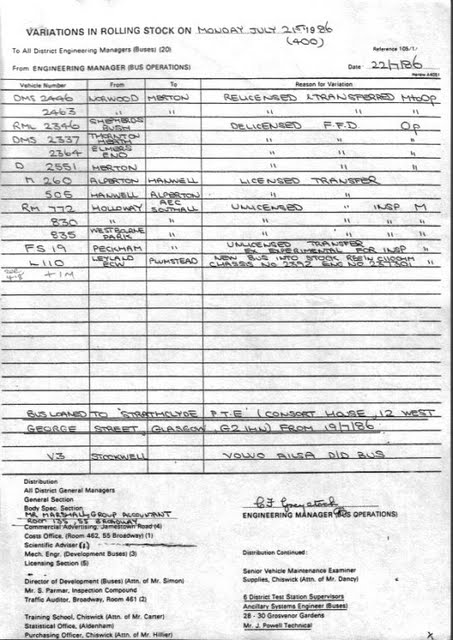 VARIATIONS IN ROLLING STOCK ON MONDAY JULY 21ST 1986
(400)
To All District Engineering Managers (Buses) (20)
Reference 105/1/
From ENGINEERING MANAGER (BUS OPERATIONS)
Date 22/7/86
Vehicle Number From To Reason for Variation
DMS 2446 NORWOOD MERTON RELICENSED & TRANSFERRED M to Op
2463 " " " " "
RML 2346 SHEPHERDS BUSH DELICENSED F.F.D Op
DMS 2337 THORNTON HEATH " " "
2364 ELMERS END " " "
D 2551 MERTON " " "
M 260 ALPERTON HANWELL LICENSED TRANSFER
505 HANWELL ALPERTON " "
RM 772 HOLLOWAY AEC SOUTHALL UNLICENSED " INSP M
830 " " " " " "
835 WESTBOURNE PARK " " " " "
FS 19 PECKHAM " UNLICENSED TRANSFER EX EXPERIMENTAL FOR INSP "
L 110 LEYLAND ECW PLUMSTEAD NEW BUS INTO STOCK REG'N C110CHM CHASSIS NO 2392 ENG NO 237301 "
+ 1M
BUS LOANED TO 'STRATHCLYDE P.T.E' (CONSORT HOUSE, 12 WEST
GEORGE STREET, GLASGOW, G2 1HN) FROM 19/7/86.
V3 STOCKWELL VOLVO AILSA D/D BUS
Distribution
All District General Managers
General Section
Body Spec. Section
MR MARSHALL, GROUP ACCOUNTANT
ROOM 135, 55 BROADWAY
Commercial Advertising, Jamestown Road (4)
Costs Office, (Room 462, 55 Broadway) (1)
Scientific Adviser (1)
Mech. Engr. (Development Buses) (3)
Licensing Section (5)
Director of Development (Buses) (Attn. of Mr. Simon)
Mr. S. Parmar, Inspection Compound
Traffic Auditor, Broadway, Room 461 (2)
Training School, Chiswick (Attn. of Mr. Carter)
Statistical Office, (Aldenham)
Purchasing Officer, Chiswick (Attn. of Mr. Hillier)
ENGINEERING MANAGER (BUS OPERATIONS)
Distribution Continued:
Senior Vehicle Maintenance Examiner
Supplies, Chiswick (Attn. of Mr. Dancy)
6 District Test Station Supervisors
Ancillary Systems Engineer (Buses)
28 - 30 Grosvenor Gardens
Mr. J. Powell Technical
X